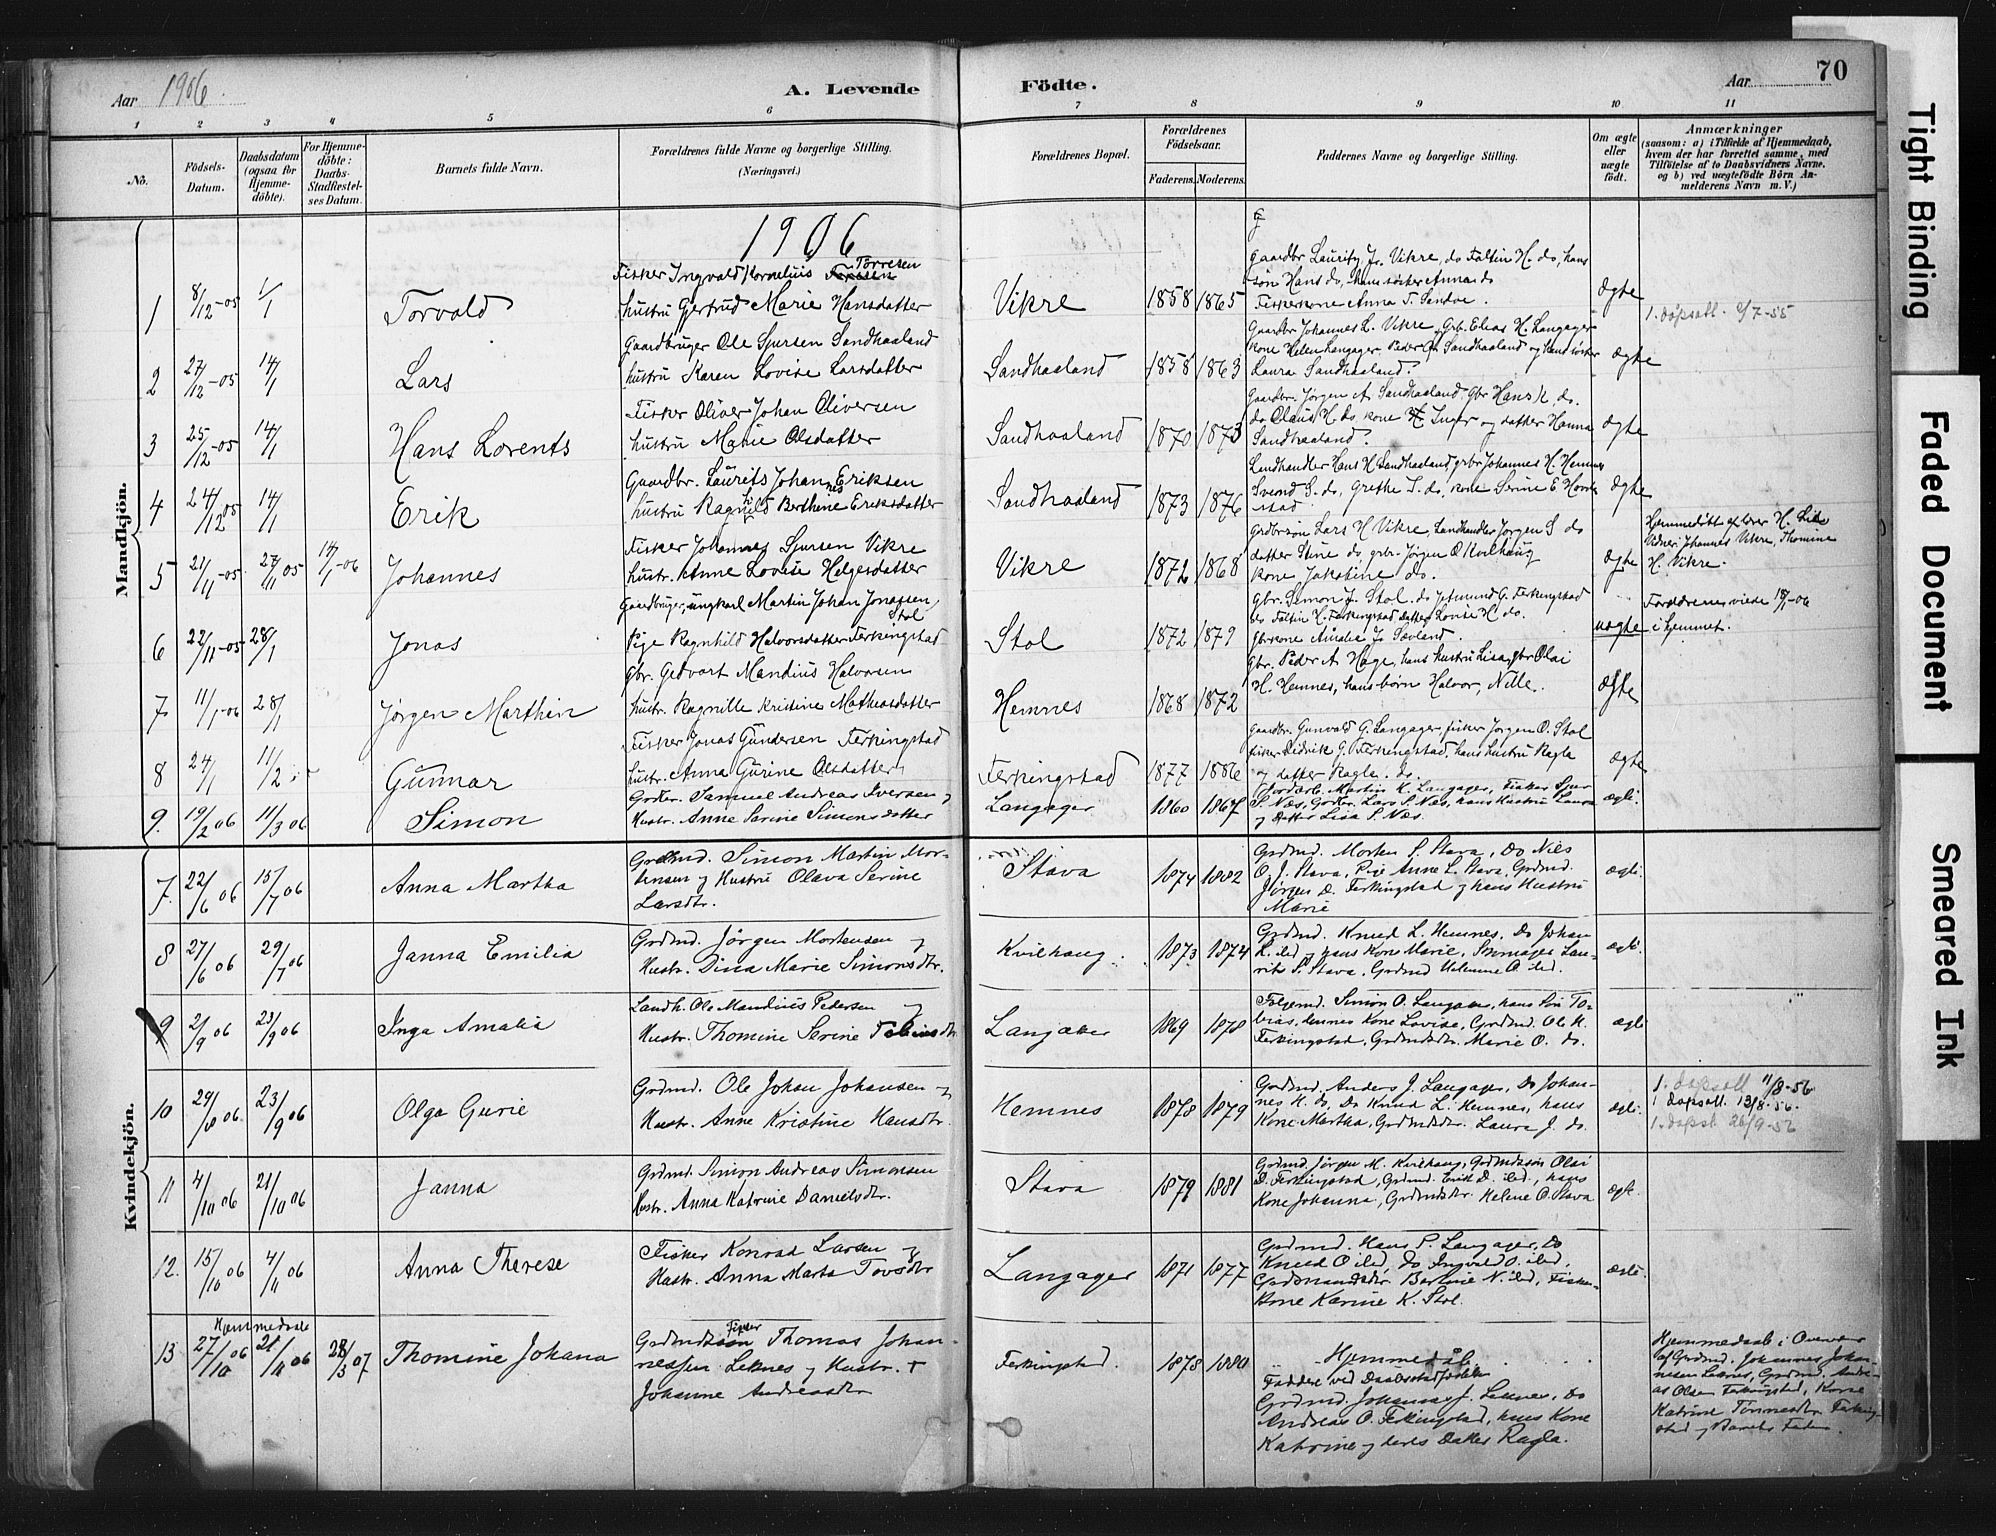 Aar 1906.
A. Levende
Födte.
Aar
70
1 2 3 4 5 6 7 8 9 10 11
No.
Födsels-
Datum.
Daabsdatum
(ogsaa for
Hjemme-
döbte).
For Hjemme-
döbte:
Daabs-
Stadfæstel-
ses Datum.
Barnets fulde Navn.
Forældrenes fulde Navne og borgerlige Stilling.
(Næringsvei.)
Forældrenes Bopæl.
Forældrenes
Födselsaar.
Faderens. Moderens.
Faddernes Navne og borgerlige Stilling.
Om ægte
eller
uægte
födt.
Anmærkninger
(saasom: a) i Tilfælde af Hjemmedaab,
hvem der har forrettet samme, med
Tilföielse af to Daabsvidners Navne.
og b) ved uægtefödte Börn An-
melderens Navn m. V.)
Mandkjön.
1906
1 8/12-05 1/1 Torvald
Fisker Ingvald Kornelius Torresen
hustru Gjertrud Marie Hansdatter
Vikre 1858 1865
Gaardbr Laurits Js. Vikre, do Faltin H. do, hans
søn Hans do, hans søster Anna do
Fiskerkone Anna T. Sandve.
ægte
1. dåpsatt. 4/7-55
2 27/12-05 14/1 Lars
Gaardbruger Ole Sjursen Sandhaaland
hustru Karen Lovise Larsdatter
Sandhaaland 1858 1863
Gaardbr Johannes L. Vikre, Grb. Elias H. Langager
kone Helen Langager, Peder O. Sandhaaland og hans søster
Laura Sandhaaland.
ægte
3 25/12-05 14/1 Hans Lorents
Fisker Oliver Johan Oliversen
hustru Marie Olsdatter
Sandhaaland 1870 1873
Gaardbr. Jørgen A. Sandhaaland Gbr Hans K. do.
do Olaus H. do, kone Inger og datter Hanna
Sandhaaland.
ægte
4 24/12 05 14/1 Erik
Gaardbr. Laurits Johannes Eriksen
hustru Ragnhild Berthine Eriksdatter
Sandhaaland 1873 1876
Landhandler Hans H Sandhaaland, grbr Johannes H. Hemnes
Svend S. do, Grethe S. do, kone Serine E
ægte
5 21/11-05 27/11 05 14/1-06 Johannes
Fisker Johannes Sjursen Vikre
hustr. Anne Lovise Helgesdatter
Vikre 1872 1868
Grdbrsøn Lars H Vikre, Landhandler Jørgen S do
datter Stine do grbr. Jørgen O Kvilhaug
kone Jakobine do.
ægte
Hjemmedøbt af lærer H. Lie
Vidner Johannes Vikre, Thomine
H. Vikre.
6 22/11-05 28/1 Jonas
Gaardbruger, ungkarl Martin Johan Jonassen,
Stol
Pige Ragnhild Halvorsdatter Ferkingstad
Stol 1872 1879
Gbr. Simon J. Stol. do Jetmund G. Ferkingstad
do Faltin H. Ferkingstad datter Lovise H do.
Gbrkone Amalie J. Sævland.
uægte
Forældrenes vielse 18/1-06
i hjemmet.
7 11/1-06 28/1 Jørgen Marthin
Gbr. Gedvart Mandius Halvorsen
hustr. Ragnille Kristine Mathiasdatter
Hemnes 1868 1872
Gbr. Peder A. Hage, hans hustru Lisa, gbr Olai
H. Hemnes, hans børn Halvor, Nille.
ægte
8 24/1 11/2 Gunnar
Fisker Jonas Gundersen Ferkingstad
hustr. Anna Gurine Olsdatter
Ferkingstad 1877 1886
Gaardbr. Gunvald G. Langager, fisker Jørgen O. Stol
fisker Didrik G. Ferkingstad, hans hustru Ragla
og datter Ragla do.
ægte
9. 19/2 06 11/3 06 Simon
Grdbr. Samuel Andreas Iversen og
Hustr. Anne Serine Simonsdatter
Langager 1860 1867
Jordarb. Martin K. Langager, Fisker Sjur
S. Næs, Grdbr. Lars S. Næs, hans Hustru Laura
og Datter Lisa S. Næs.
ægte.
Kvindekjön.
7. 22/6 06 15/7 06 Anna Martha
Grdmd. Simon Martin Mor-
tensen og Hustru Olava Serine
Larsdtr.
Stava 1874 1882
Grdmd. Morten S. Stava, Do Nils
O. J. Stava, Pige Anne L. Stava, Grdmd.
Jörgen D. Ferkingstad og hans Hustru
Marie
ægte.
8 27/6 06 29/7 06 Janna Emilia
Grdmd. Jörgen Mortensen og
Hustr. Dina Marie Simonsdtr.
Kvilhaug. 1873 1874
Grdmd. Knud L. Hemnes, Do Johan
L. ibd og hans Kone Marie, Skomager Lau-
rits S. Stava, Grdmd Helmine O. ibd.
ægte.
9 2/9 06 23/9 06 Inga Amalia
Landh. Ole Mandius Pedersen og
Hustr. Thomine Serine Tobiasdtr
Langaker 1869 1878
Folgemd. Simon O. Langager, hans Sön To-
bias, dennes Kone Lovise, Grdmd. Ole K.
Ferkingstad, Grdmdsdtr. Marie O. do.
ægte
10 29/8 06. 23/9 06 Olga Gurie
Grdmd. Ole Johan Johansen og
Hustr. Anne Kristine Hansdtr.
Hemnes 1878 1879
Grdmd. Anders J. Langager, Do Johan-
nes H. do, Do Knud L. Hemnes, hans
Kone Martha, Grdmdsdtr. Laura J. do.
ægte.
1. dåpsatt 11/8-56
1 dåpsatt. 13/8-56.
1. dåpsatt 26/9-56
11 4/10 06 21/10 06 Janna
Grdmd. Simon Andreas Simonsen
Hustr. Anna Katrine Danielsdtr.
Stava 1879 1881
Grdmd. Jörgen M. Kvilhaug, Grdmdssön Olai
D. Ferkingstad, Grdmd. Erik D. ibd., hans
Kone Johanna, Grdmdsdtr. Helene O. Stava
ægte.
12. 15/10 06 4/11 06 Anna Therese
Fisker Konrad Larsen og
Hustr. Anna Marta Tovsdtr
Langager 1871 1877
Grdmd. Hans P. Langager, Do
Knud O ibd, Do Ingvald O. ibd,
Grdmandsdtr Bertine N. ibd, Fisker-
kone Karine K. Stol.
ægte.
Hjemmedöbt
13 27/10 06 21/11 06 28/3 07. Thomine Johana
Fisker
Grdmdssön Thomas Johan-
nessen Leknes og Hustr.
Johanne Andreasdtr
Ferkingstad. 1878 1880
Hjemmedåb.
Faddere ved Daabsstadfæstelsen
Grdmd. Johannes J. Leknes, Do
Andreas O. Ferkingstad, hans Kone
Katrine og deres Datter Ragla.
Hjemmedaab i Overvær
af Grdmd. Johannes Johan-
nesen Leknes, Grdmd. Andre-
as Olsen Ferkingstad, Kone
Katrine Tönnesdtr. Ferking-
stad og Barnets Fader.
Tight Binding
Faded Document
Smeared Ink